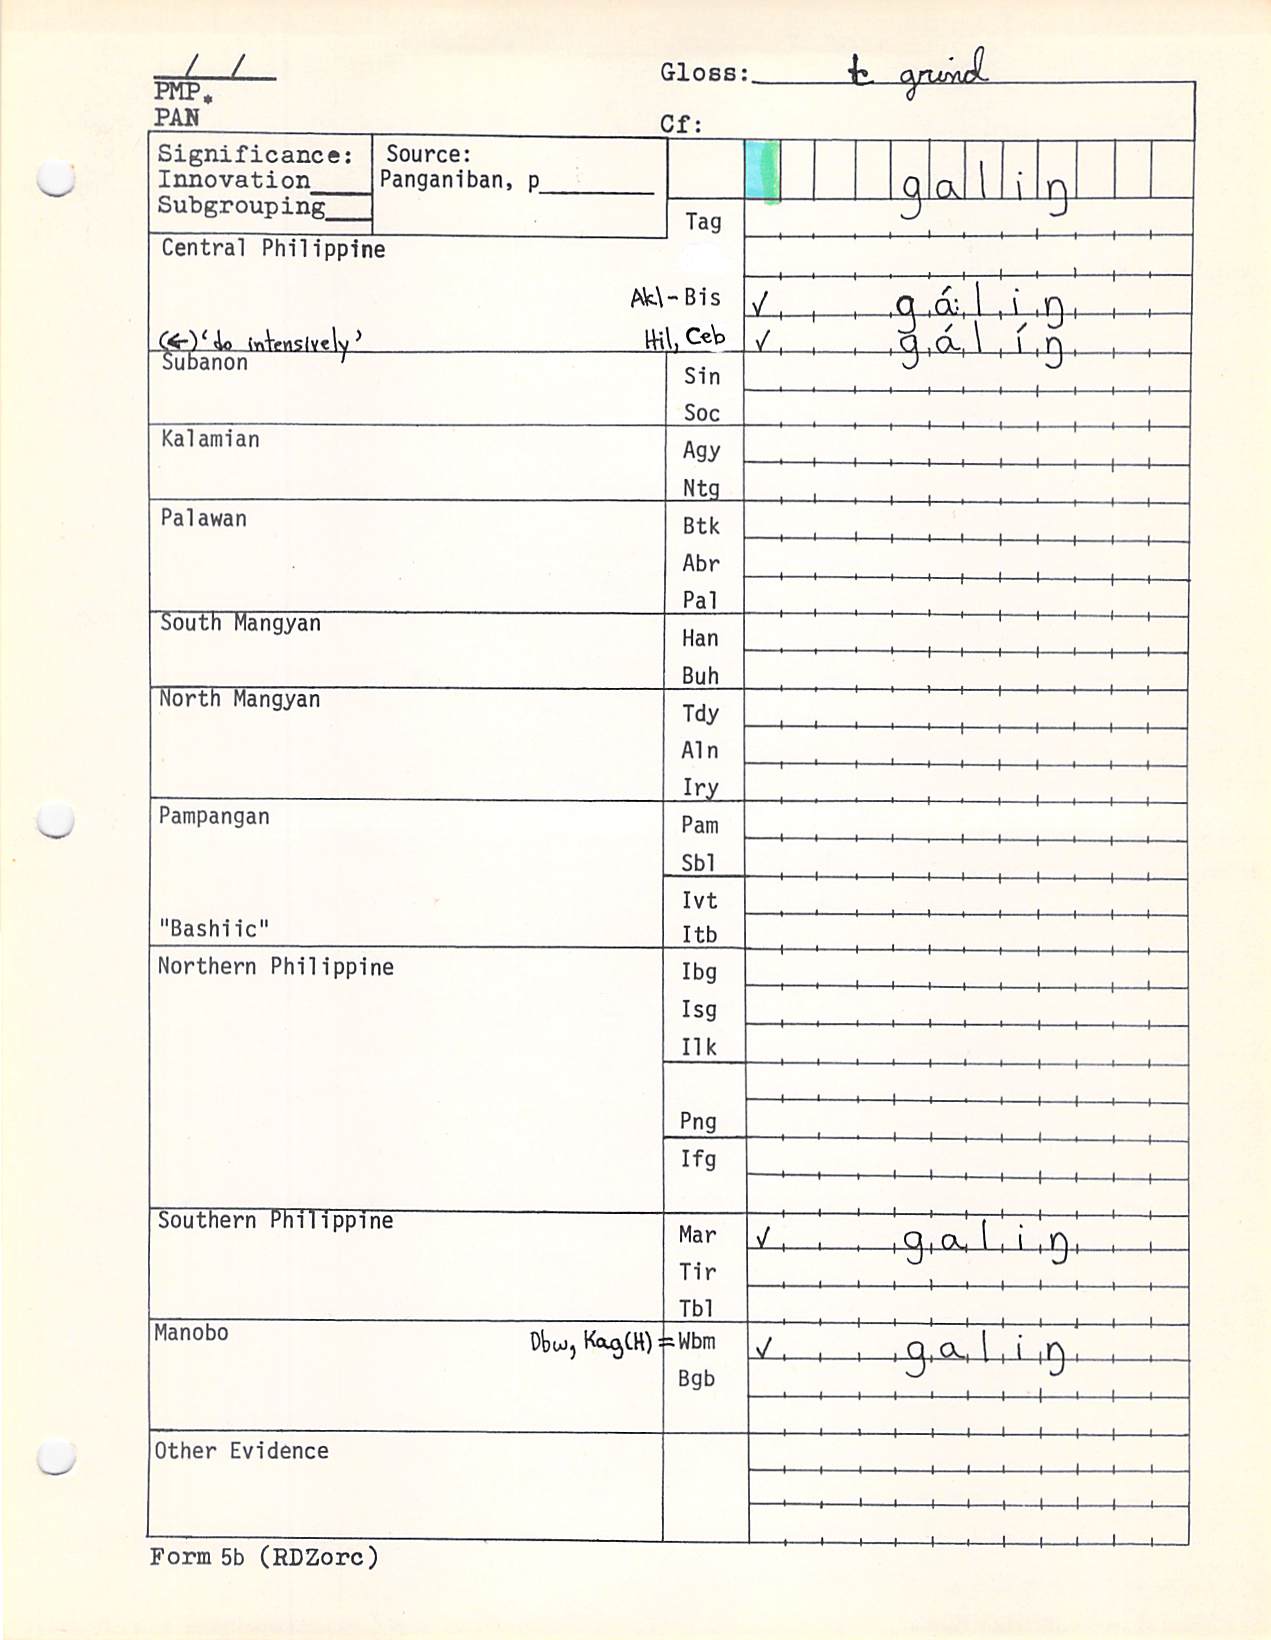 / /
PMP*
PAN
Gloss: to grind
Cf:
Significance:
Innovation
Subgrouping
Source:
Panganiban, p
galiŋ
Tag
Central Philippine
Akl-Bis ✓ gá:liŋ
(←) 'do intensively' Hil, Ceb ✓ gálíŋ
Subanon
Sin
Soc
Kalamian
Agy
Ntg
Palawan
Btk
Abr
Pal
South Mangyan
Han
Buh
North Mangyan
Tdy
Aln
Iry
Pampangan
Pam
Sbl
Ivt
"Bashiic" Itb
Northern Philippine
Ibg
Isg
Ilk
Png
Ifg
Southern Philippine
Mar ✓ galiŋ
Tir
Tbl
Manobo Dbw, Kag(H) = Wbm ✓ galiŋ
Bgb
Other Evidence
Form 5b (RDZorc)